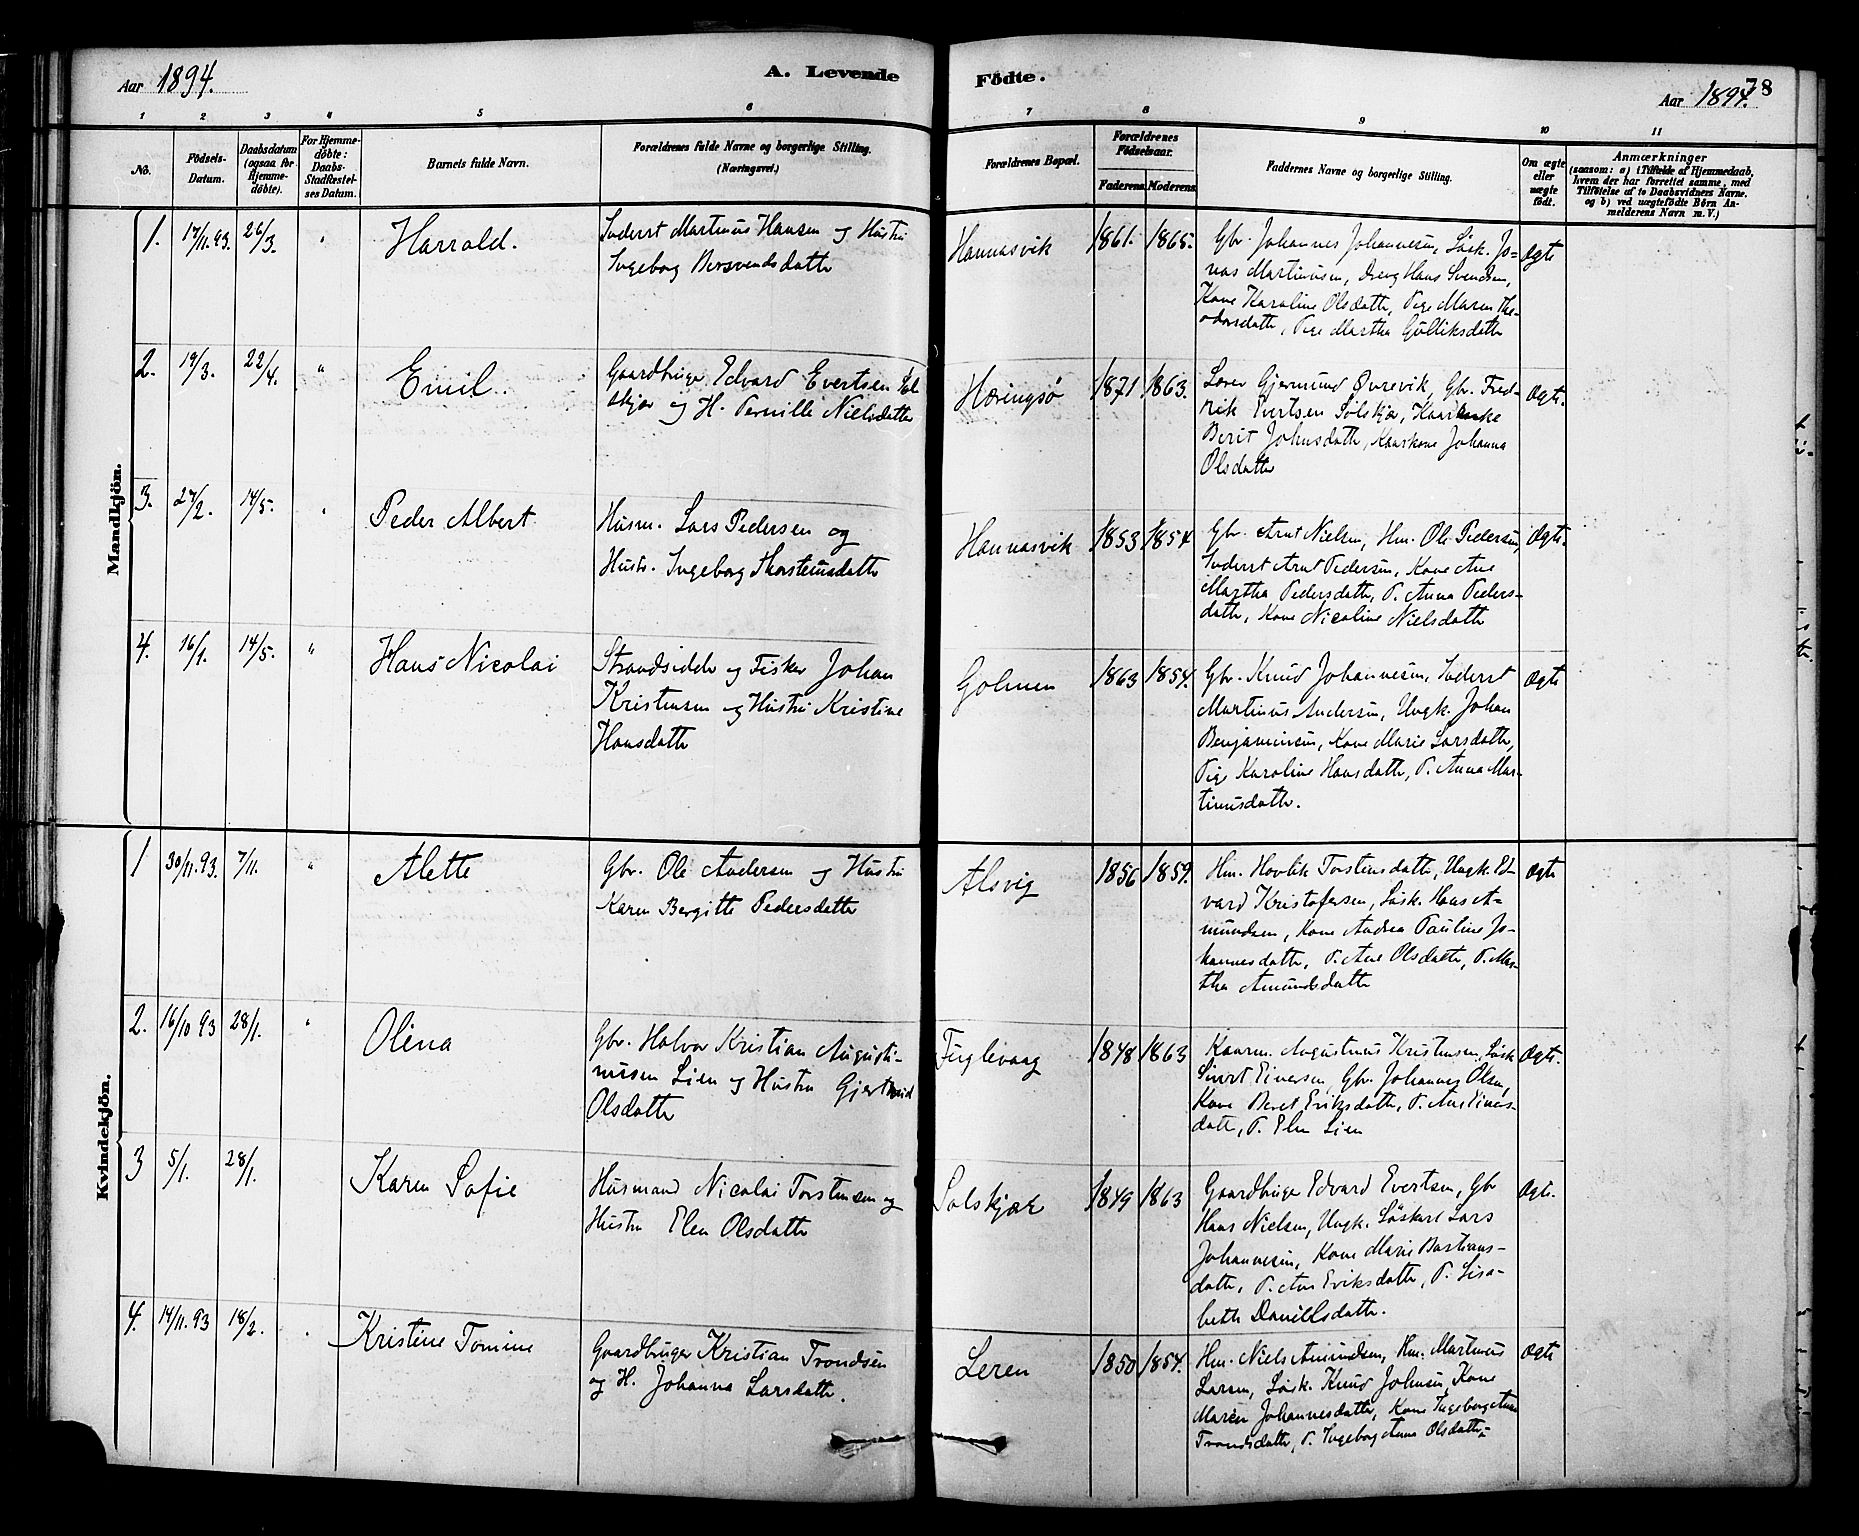 Aar 1894.
A. Levende
Födte.
Aar 1894.
78
1 2 3 4 5 6 7 8 9 10 11
No.
Födsels-
Datum.
Daabsdatum
(ogsaa for
Hjemme-
döbte).
For Hjemme-
döbte:
Daabs-
Stadfæstel-
ses Datum.
Barnets fulde Navn.
Forældrenes fulde Navne og borgerlige Stilling.
(Næringsvei.)
Forældrenes Bopæl.
Forældrenes
Födselsaar.
Faderens. Moderens.
Faddernes Navne og borgerlige Stilling.
Om ægte
eller
uægte
födt.
Anmærkninger
(saasom: a) i Tilfælde af Hjemmedaab,
hvem der har forrettet samme, med
Tilföielse af to Daabsvidners Navne.
og b) ved uægtefödte Börn An-
melderens Navn m. V.)
Mandkjön.
1. 17/11.93. 26/3. " Harrald.
Inderst Martinus Hansen og Hustru
Ingeborg Bersvendsdatter
Hannasvik 1861. 1865.
Gbr. Johannes Johannesen, Løsk. Jo-
nas Martinusen, Dreng Hans Svendsen,
Kone Karoline Olsdatter, Pige Maren The-
odorsdatter, Pige Martha Gulliksdatter
Ægte
2. 19/3. 22/4. " Emil.
Gaardbruger Edvard Evertsen Søl-
skjær og H. Pernille Nielsdatter
Hæringsø 1871 1863.
Lærer Gjermund Øvrevik, Gbr. Fred-
rik Evertsen Sølskjær,
Berit Johnsdatter, Kaarkone Johanna
Olsdatter
Ægte.
3. 27/2. 14/5. " Peder Albert
Husm. Lars Pedersen og
Hustr. Ingeborg Thorsteinsdatter
Hannasvik 1853 1854
Gbr. Arnt Nielsen, Hm. Ole Pedersen,
Inderst Arnt Pedersen, Kone Ane
Martha Pedersdatter, P. Anna Peders-
datter, Kone Nicoline Nielsdatter
Ægte.
4. 16/1. 14/5. " Hans Nicolai
Strandsidder og Fisker Johan
Kristensen og Hustru Kristine
Hansdatter
Golmen 1863 1854.
Gbr. Knud Johannesen, Inderst
Martinus Andersen, Ungk. Johan
Benjaminsen, Kone Marie Larsdatter,
Pige Karoline Hansdatter, P. Anna Mar-
tinusdatter.
Ægte
Kvindekjön.
1 30/11.93. 7/11. " Alette
Gbr. Ole Andersen og Hustru
Karen Bergitte Pedersdatter
Alsvig 1856 1859.
Hm. Hovlik Torstensdatter, Ungk. Ed-
vard Kristofersen, Løsk. Hans A-
mundsen, Kone Andrea Pauline Jo-
hannesdatter, P. Ane Olsdatter, P. Mar-
tha Amundsdatter
Ægte
2. 16/10 93 28/1. " Olina
Gbr. Halvor Kristian Augusti-
nusen Lien og Hustru Gjertrud
Olsdatter
Fuglevaag 1848 1863
Kaarm. Augustinus Kristensen, Løsk
Sivert Einersen, Gbr. Johannes Olsen,
Kone Beret Eriksdatter, P. Ane Einers-
datt, P. Elen Lien
Ægte.
3 5/1. 28/1. Karen Sofie
Husmand Nicolai Torstensen og
Hustru Elen Olsdatter
Solskjær 1849 1863
Gaardbruger Edvard Evertsen, Gbr
Hans Nielsen, Ungk. Løskarl Lars
Johannesen, Kone Marie Bastians-
datter, P. Ane Eriksdatter, P. Lisa-
beth Danielsdatter.
Ægte.
4. 14/11.93 18/2. " Kristine Tomine
Gaardbruger Kristian Trondsen
og H. Johanna Larsdatter.
Leren 1850 1854.
Hm. Niels Amundsen, Hm. Martinus
Larsen, Løsk. Knud Johnsen, Kone
Maren Johannesdatter, Kone Ingeborg Anna
Trondsdatter, P. Ingeborg Anna Olsdatter.
Ægte